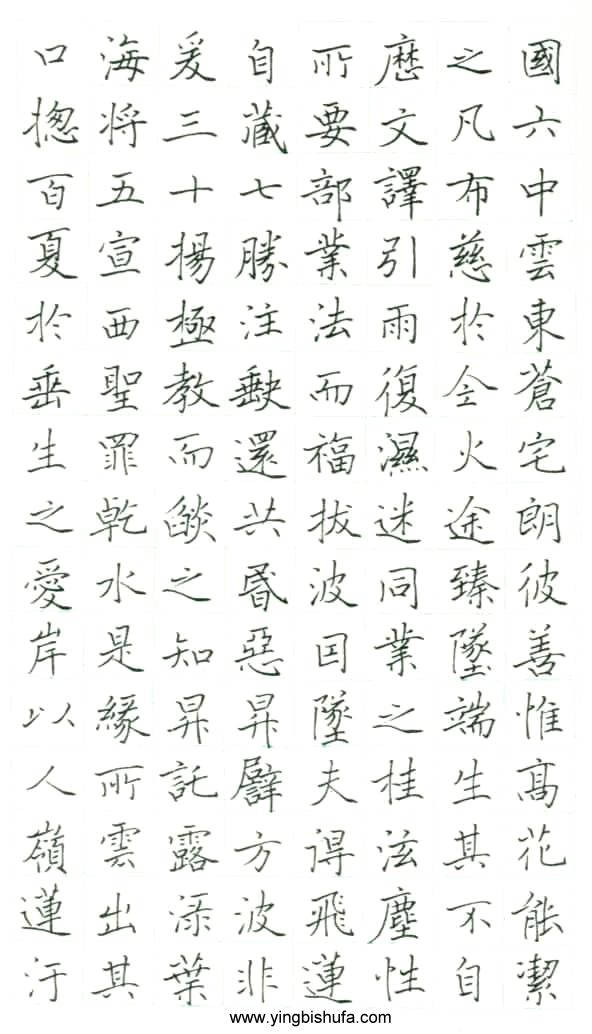 口海爰自所歷之國
揔将三藏要文凡六
百五十七部譯布中
夏宣揚勝業引慈雲
於西極注法雨於東
垂聖教缺而復全蒼
生罪而還福濕火宅
之乾燄共拔迷途朗
愛水之昬波同臻彼
岸是知惡囙業墜善
以緣昇昇墜之端惟
人所託譬夫桂生髙
嶺雲露方得泫其花
蓮出渌波飛塵不能
汙其葉非蓮性自潔
www.yingbishufa.com